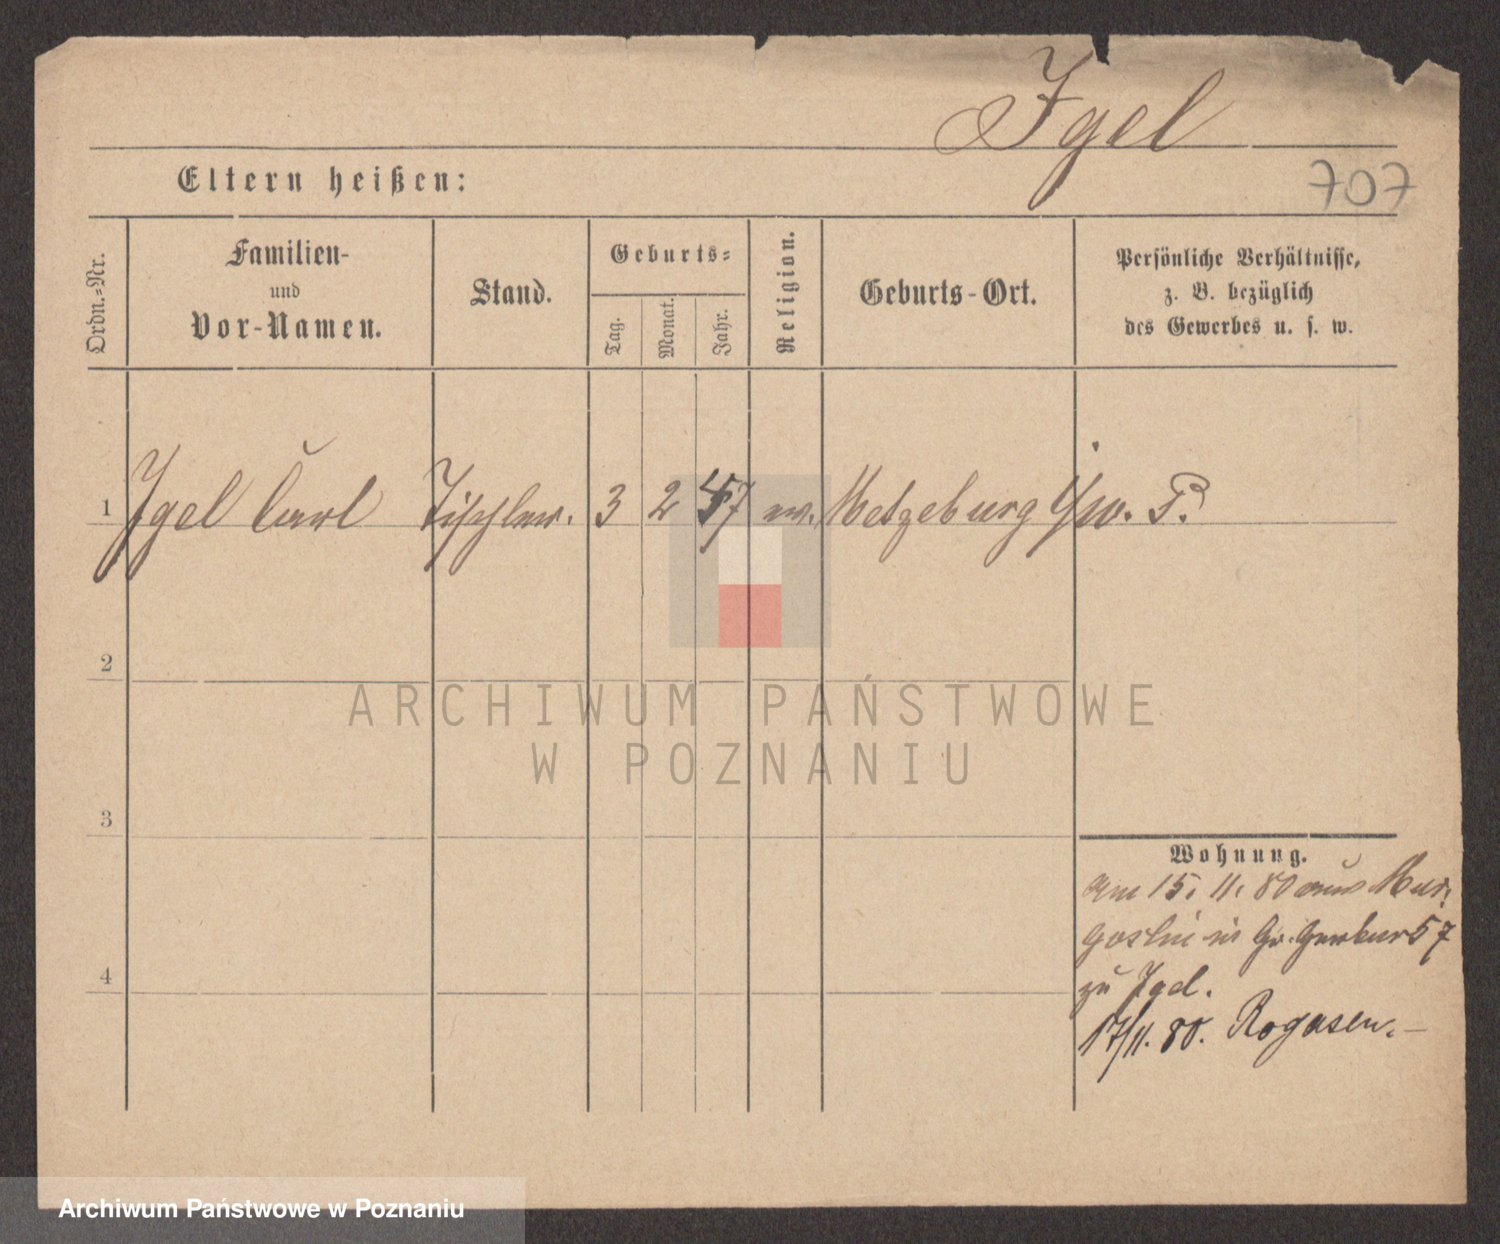 Igel
Eltern heißen:
707
Ordn.-Nr.
Familien-
und
Vor-Namen.
Stand.
Geburts-
Tag.
Monat.
Jahr.
Religion.
Geburts-Ort.
Persönliche Verhältnisse,
z. B. bezüglich
des Gewerbes u. s. w.
1 Igel Carl Tischler. 3 2 57 ev. P.
2
3
4
Wohnung.
Am 15. 11. 80 aus Mur.
Goslin in Gr. Gerber 57
zu Igel.
17/11. 80. Rogasen.
ARCHIWUM PAŃSTWOWE
W POZNANIU
Archiwum Państwowe w Poznaniu